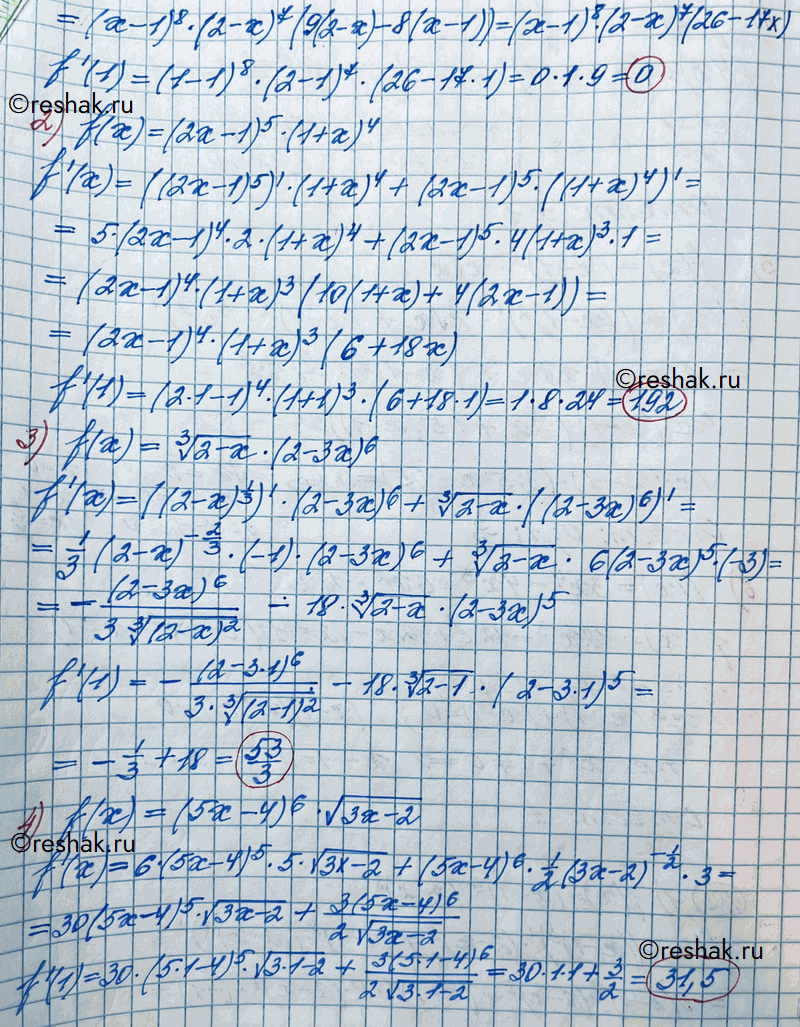 = (x-1)⁸·(2-x)⁷(9(2-x)-8(x-1))=(x-1)⁸·(2-x)⁷(26-17x)
f'(1) = (1-1)⁸·(2-1)⁷·(26-17·1)=0·1·9=0
©reshak.ru
2) f(x)=(2x-1)⁵·(1+x)⁴
f'(x)= ((2x-1)⁵)'·(1+x)⁴+(2x-1)⁵·((1+x)⁴)'=
= 5·(2x-1)⁴·2·(1+x)⁴+(2x-1)⁵·4(1+x)³·1=
= (2x-1)⁴·(1+x)³(10(1+x)+4(2x-1))=
= (2x-1)⁴·(1+x)³(6+18x)
©reshak.ru
f'(1)=(2·1-1)⁴·(1+1)³·(6+18·1)=1·8·24=192
3) f(x)=∛(2-x)·(2-3x)⁶
f'(x)=((2-x)^(1/3))'·(2-3x)⁶+∛(2-x)·((2-3x)⁶)'=
=1/3(2-x)^(-2/3)·(-1)·(2-3x)⁶+∛(2-x)·6(2-3x)⁵·(-3)=
=-(2-3x)⁶/(3∛((2-x)²)) - 18·∛(2-x)·(2-3x)⁵
f'(1)=-(2-3·1)⁶/(3·∛((2-1)²))-18·∛(2-1)·(2-3·1)⁵=
= -1/3+18=53/3
4) f(x)=(5x-4)⁶·√(3x-2)
©reshak.ru
f'(x)=6·(5x-4)⁵·5·√(3x-2)+(5x-4)⁶·1/2(3x-2)^(-1/2)·3=
=30(5x-4)⁵·√(3x-2)+3(5x-4)⁶/(2√(3x-2))
©reshak.ru
f'(1)=30·(5·1-4)⁵·√(3·1-2)+3(5·1-4)⁶/(2√(3·1-2))=30·1·1+3/2=31,5